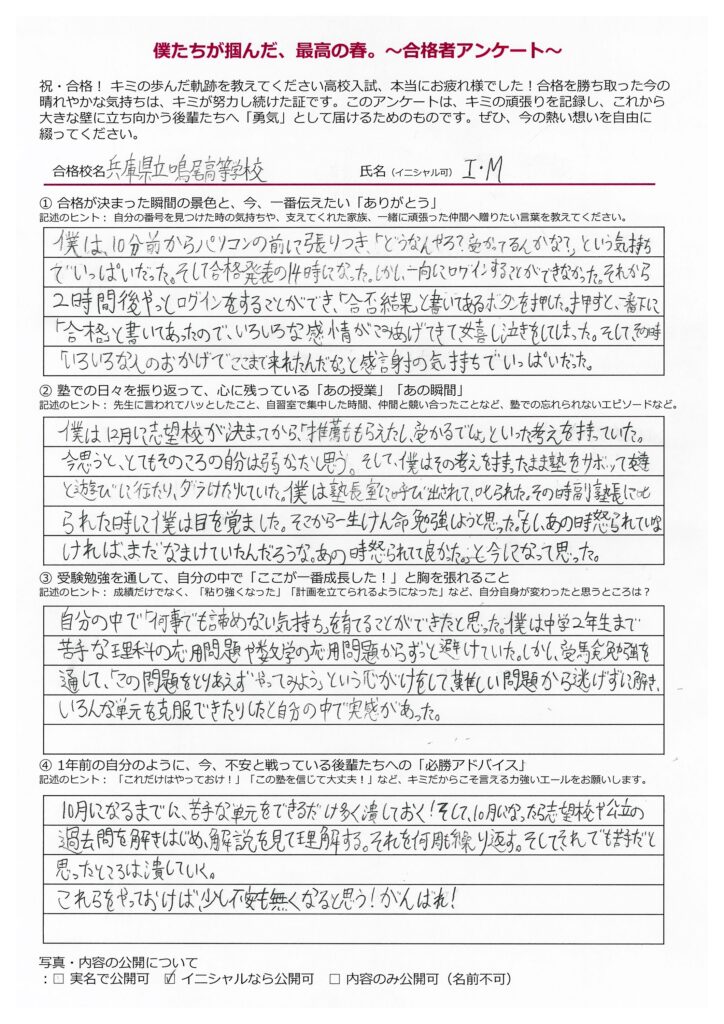 僕たちが掴んだ、最高の春。～合格者アンケート～
祝・合格！ キミの歩んだ軌跡を教えてください高校入試、本当にお疲れ様でした！合格を勝ち取った今の
晴れやかな気持ちは、キミが努力し続けた証です。このアンケートは、キミの頑張りを記録し、これから
大きな壁に立ち向かう後輩たちへ「勇気」として届けるためのものです。ぜひ、今の熱い想いを自由に
綴ってください。
合格校名 兵庫県立鳴尾高等学校 氏名（イニシャル可） I・M
① 合格が決まった瞬間の景色と、今、一番伝えたい「ありがとう」
記述のヒント： 自分の番号を見つけた時の気持ちや、支えてくれた家族、一緒に頑張った仲間へ贈りたい言葉を教えてください。
僕は、10分前からパソコンの前に張りつき、「どうなんやろ？受かってるんかな？」という気持ち
でいっぱいだった。そして合格発表の14時になった。しかし、一向にログインすることができなかった。それから
2時間後やっとログインをすることができ、「合否結果」と書いてあるボタンを押した。押すと、一番下に
「合格」と書いてあったので、いろいろな感情がこみあげてきて嬉し泣きをしてしまった。そして、その時
「いろいろな人のおかげでここまで来れたんだな」と感謝の気持ちでいっぱいだった。
② 塾での日々を振り返って、心に残っている「あの授業」「あの瞬間」
記述のヒント： 先生に言われてハッとしたこと、自習室で集中した時間、仲間と競い合ったことなど、塾での忘れられないエピソードなど。
僕は12月に志望校が決まってから、「推薦ももらえたし、受かるでしょ」といった考えを持っていた。
今思うと、とてもそのころの自分は弱かったと思う。そして、僕はその考えを持ったまま塾をサボって友達
と遊びに行たり、ダラけたりしていた。僕は塾長室に呼び出されて、叱られた。その時副塾長に叱
られた時にて僕は目を覚ました。そこから一生けん命勉強しようと思った。「もし、あの時怒られていな
ければ、まだなまけていたんだろうな。あの時怒られて良かった。」と今になって思った。
③ 受験勉強を通して、自分の中で「ここが一番成長した！」と胸を張れること
記述のヒント： 成績だけでなく、「粘り強くなった」「計画を立てられるようになった」など、自分自身が変わったと思うところは？
自分の中で「何事でも諦めない気持ち」を育てることができたと思った。僕は中学2年生まで
苦手な理科の応用問題や数学の応用問題からずっと避けていた。しかし、受験勉強を
通して、「この問題をとりあえずやってみよう」という心がけをして、難しい問題から逃げずに解き、
いろんな単元を克服できたりしたと自分の中で実感があった。
④ 1年前の自分のように、今、不安と戦っている後輩たちへの「必勝アドバイス」
記述のヒント： 「これだけはやっておけ！」「この塾を信じて大丈夫！」など、キミだからこそ言える力強いエールをお願いします。
10月になるまでに、苦手な単元をできるだけ多く潰しておく！そして、10月になったら志望校や公立の
過去問を解きはじめ、解説を見て理解する。それを何周も繰り返す。そしてそれでも苦手だと
思ったところは潰していく。
これらをやっておけば少し不安も無くなると思う！がんばれ！
写真・内容の公開について
：□ 実名で公開可 ☑ イニシャルなら公開可 □ 内容のみ公開可（名前不可）